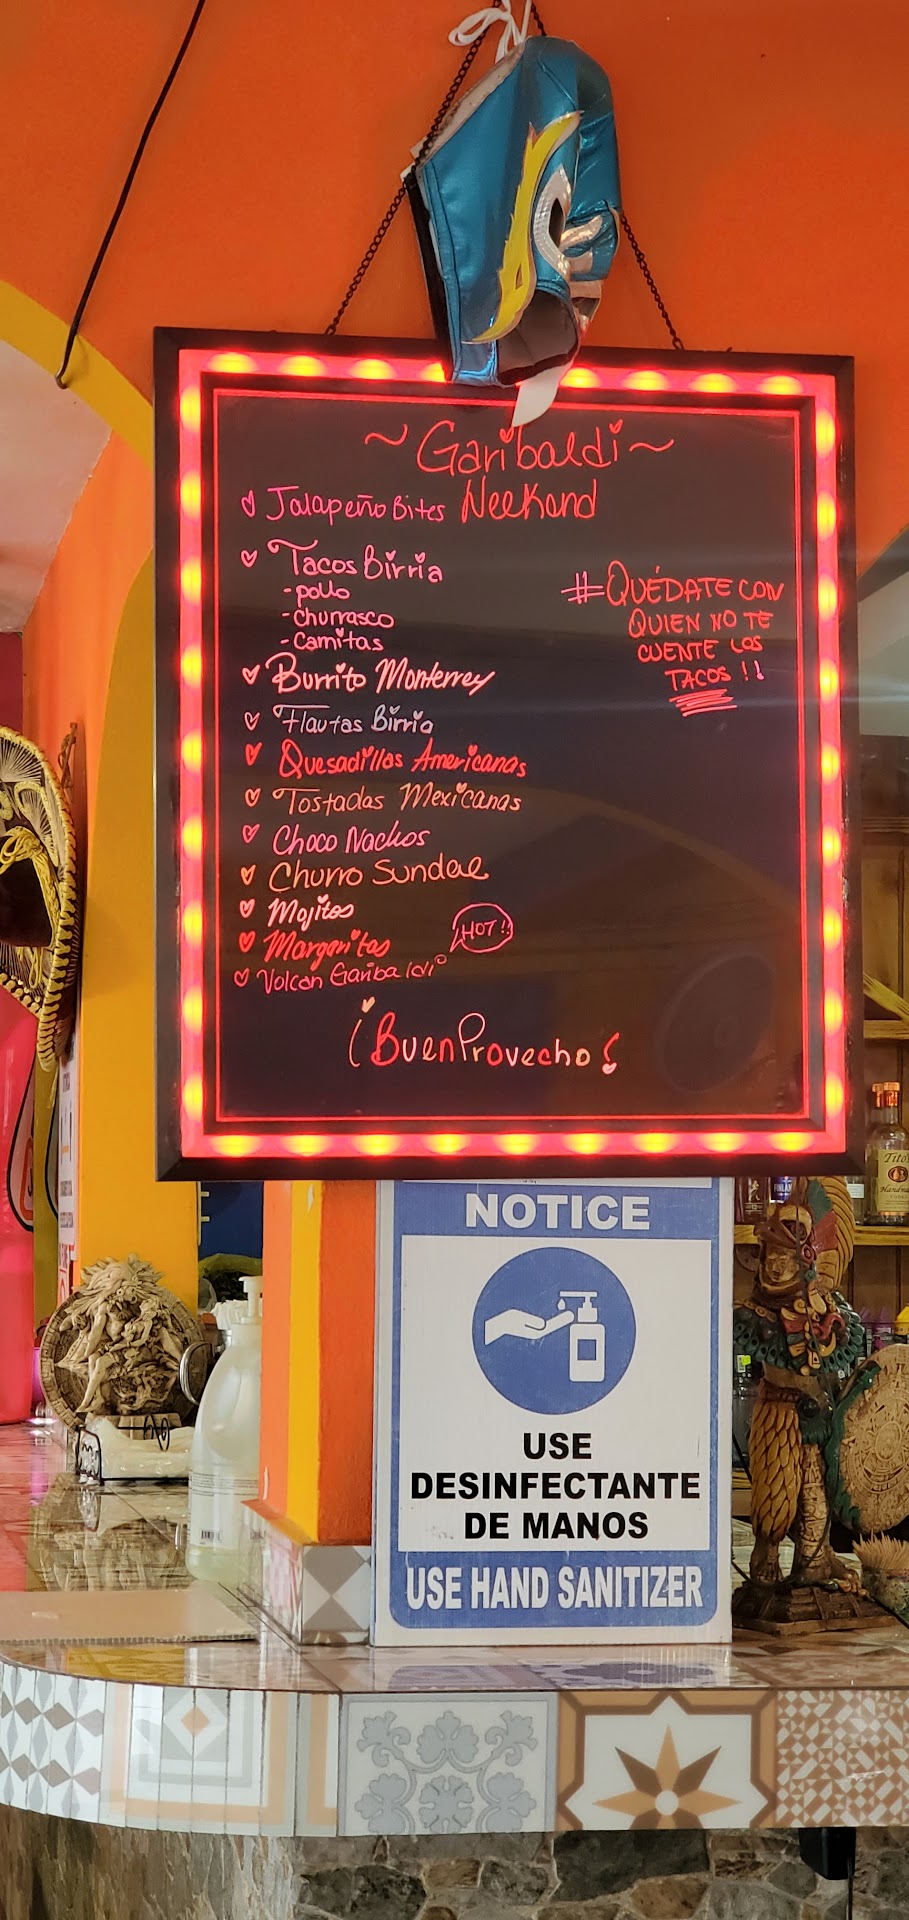 ~ Garibaldi ~
Weekend
Jalapeño Bites
Tacos Birria
- pollo
- churrasco
- Carnitas
Burrito Monterrey
Flautas Birria
Quesadillas Americanas
Tostadas Mexicanas
Choco Nachos
Churro Sundae
Mojitos
Margaritas
Volcan Garibaldi
¡HOT!!
#QUÉDATE CON
QUIEN NO TE
CUENTE LOS
TACOS!!
¡Buen Provecho!
NOTICE
USE
DESINFECTANTE
DE MANOS
USE HAND SANITIZER
Tito's
Handmade
FINLAN